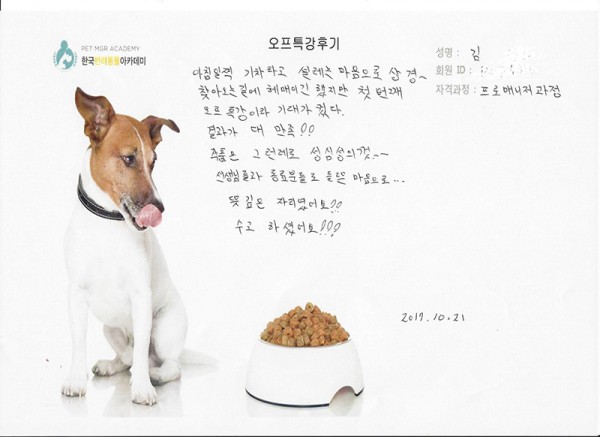 PET MGR ACADEMY
한국반려동물아카데미
오프특강후기
성명 : 김
회원 ID :
자격과정 : 프로매니저과정
아침일찍 기차타고 설레는 마음으로 상경~
찾아오는길에 헤매이긴 했지만 첫 번째
오프 특강이라 기대가 컸다.
결과가 대 만족!!
죽품은 그런데로 성심성의껏~~
선생님들과 동료분들로 들뜬 마음으로...
뜻 깊은 자리였어요!!
수고 하셨어요!!!
2017.10.21